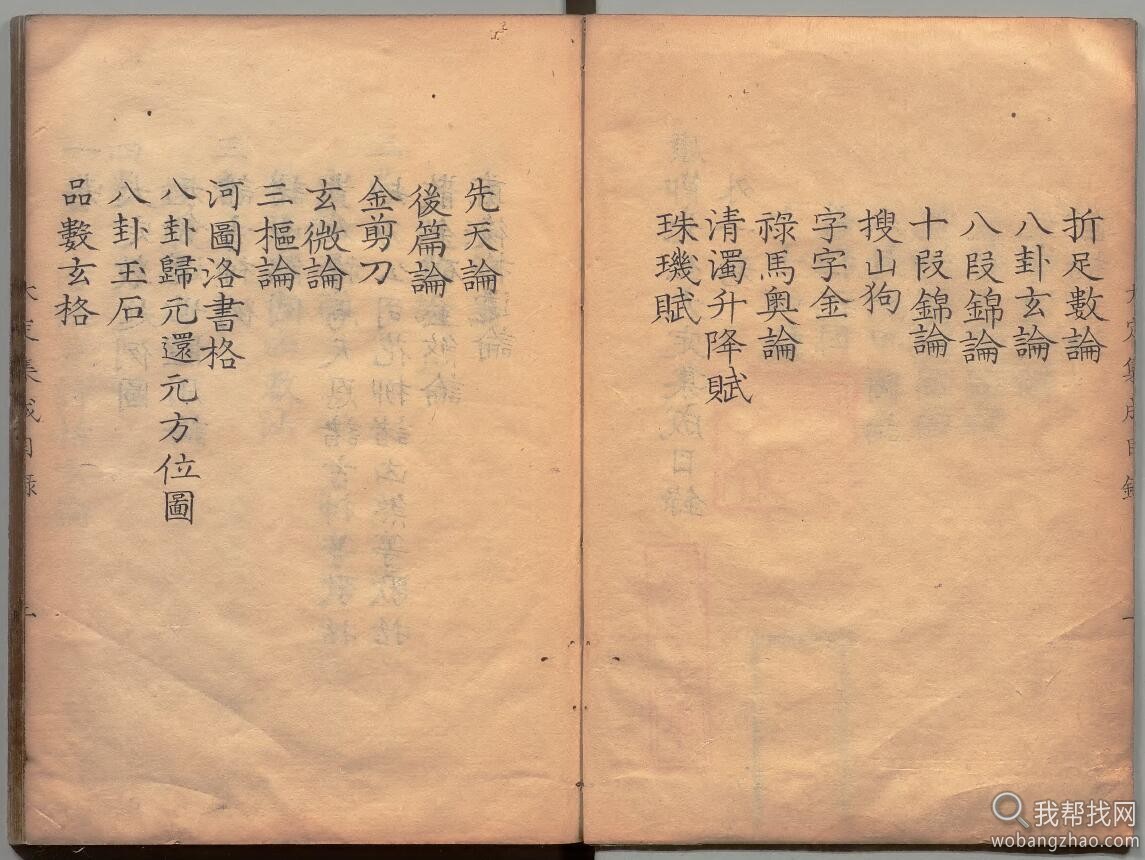 折足數論
八卦玄論
八段錦論
十段錦論
搜山狗
字字金
祿馬奧論
清濁升降賦
珠璣賦
先天論
後篇論
金剪刀
玄微論
三樞論
河圖洛書格
八卦歸元還元方位圖
八卦玉石
品數玄格
我帮找网
wobangzhao.com